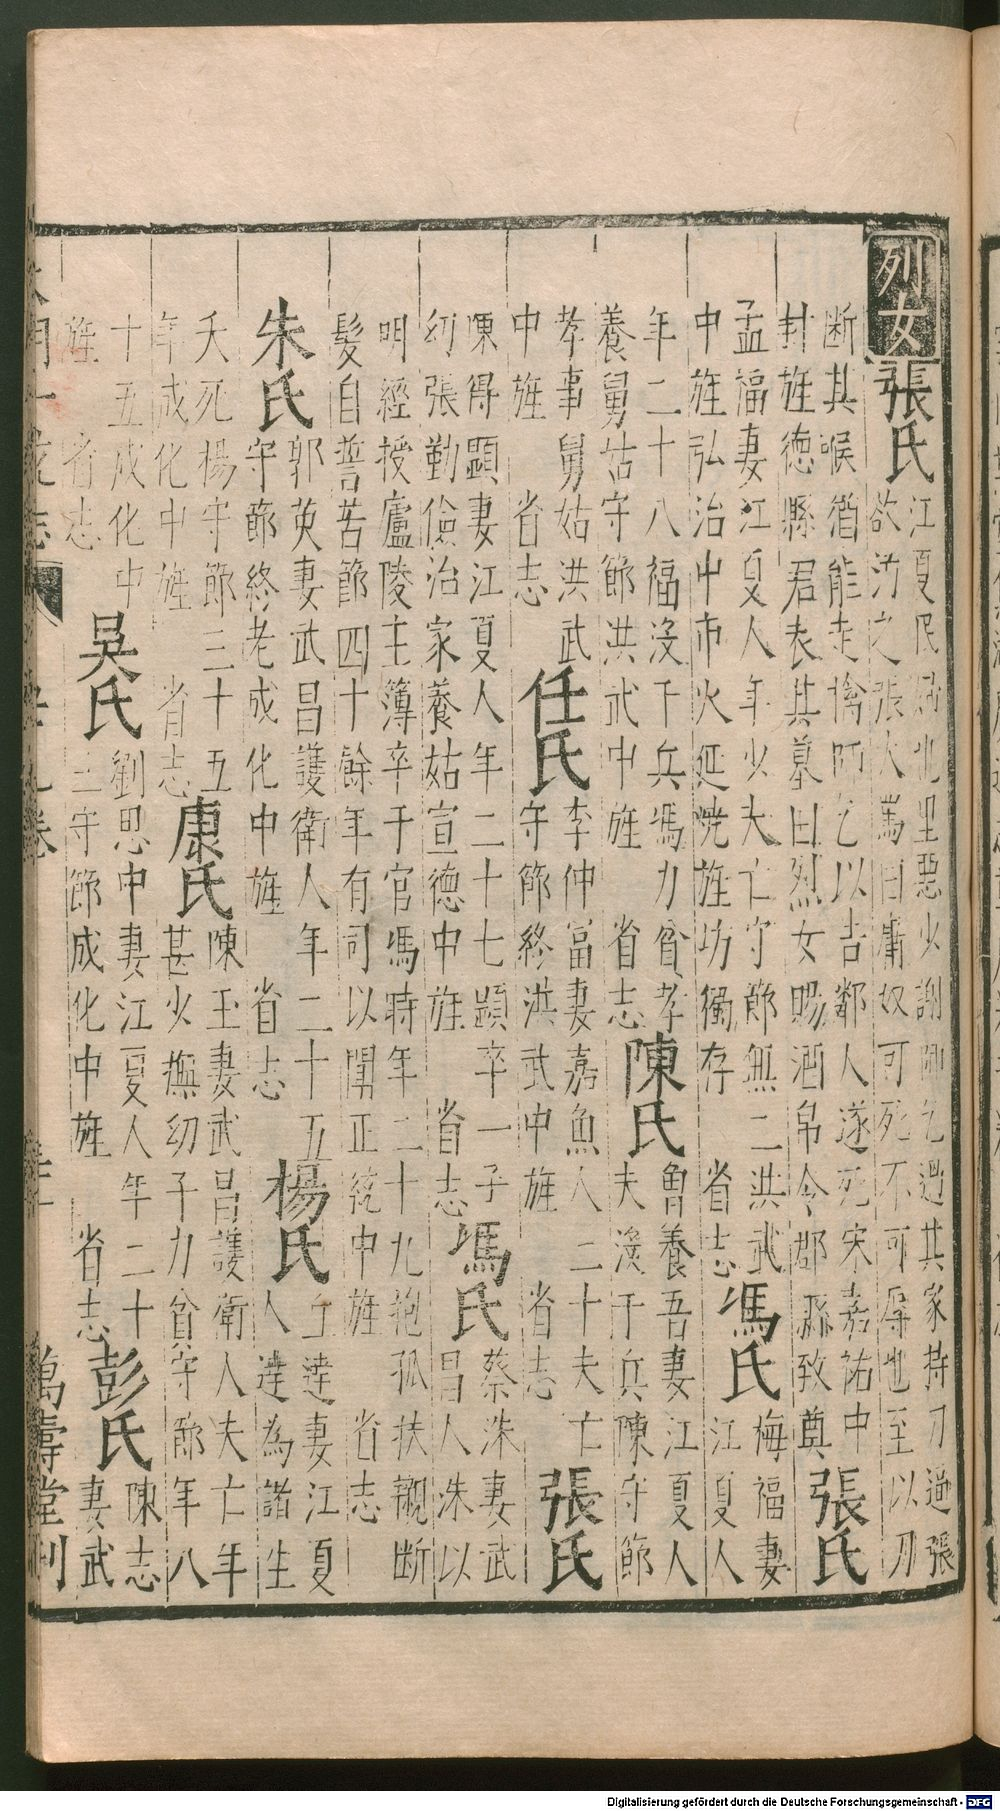 列女 張氏 江夏民婦也里惡少謝師乞過其家持刀逼張
欲汚之張大罵曰庸奴可死不可辱也至以刀
斷其喉猶能走擒師乞以告鄰人遂死宋嘉祐中
封旌德縣君表其墓曰烈女賜酒帛令郡縣致奠 張氏
孟福妻江夏人年少夫亡守節無二洪武
中旌弘治中市火延燒旌坊獨存 省志 馮氏 梅福妻
江夏人
年二十八福沒于兵馮力貧孝
養舅姑守節洪武中旌 省志 陳氏 魯養吾妻江夏人
夫沒于兵陳守節
孝事舅姑洪武
中旌 省志 任氏 李仲富妻嘉魚人二十夫亡
守節終洪武中旌 省志 張氏
陳得顕妻江夏人年二十七顕卒一子
幼張勤儉治家養姑宣德中旌 省志 馮氏 蔡洙妻武
昌人洙以
明經授廬陵主簿卒于官馮時年二十九抱孤扶襯斷
髮自誓苦節四十餘年有司以聞正統中旌 省志
朱氏 郭英妻武昌護衛人年二十五
守節終老成化中旌 省志 楊氏 丘達妻江夏
人達為諸生
夭死楊守節三十五
年成化中旌 省志 康氏 陳玉妻武昌護衛人夫亡年
甚少撫幼子力貧守節年八
十五成化中
旌 省志 吳氏 劉思中妻江夏人年二十
三守節成化中旌 省志 彭氏 陳志
妻武
萬壽堂刊
Digitalisierung gefördert durch die Deutsche Forschungsgemeinschaft - DFG